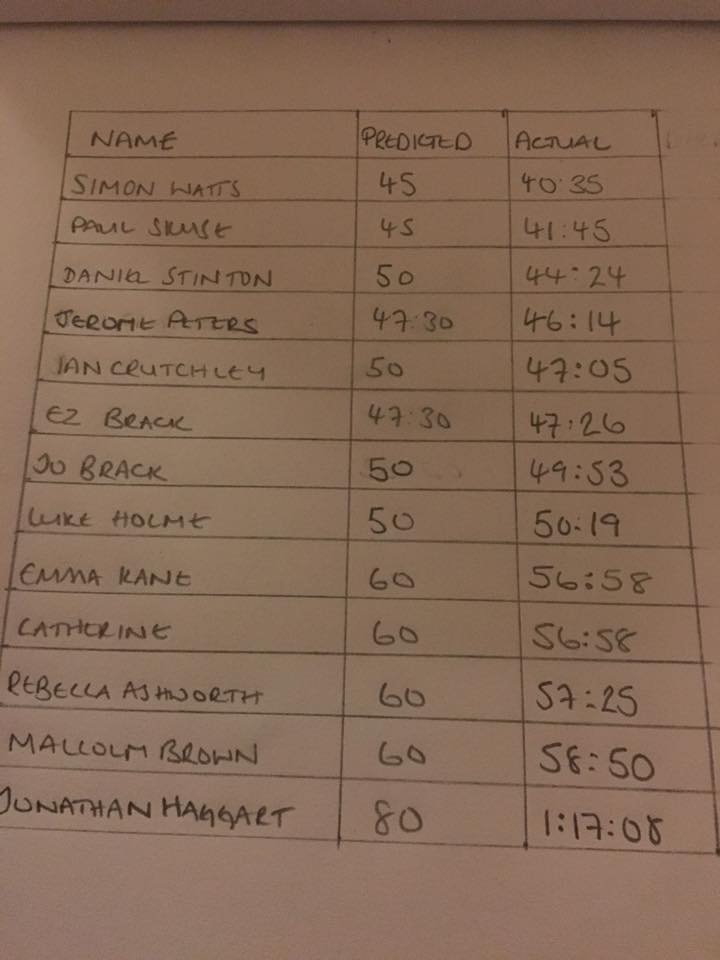 NAME PREDICTED ACTUAL
SIMON WATTS 45 40:35
PAUL SKUSE 45 41:45
DANIEL STINTON 50 44:24
JEROME PETERS 47:30 46:14
IAN CRUTCHLEY 50 47:05
EZ BRACK 47:30 47:26
JO BRACK 50 49:53
LUKE HOLME 50 50:19
EMMA KANE 60 56:58
CATHERINE 60 56:58
REBECCA ASHWORTH 60 57:25
MALCOLM BROWN 60 58:50
JONATHAN HAGGART 80 1:17:08